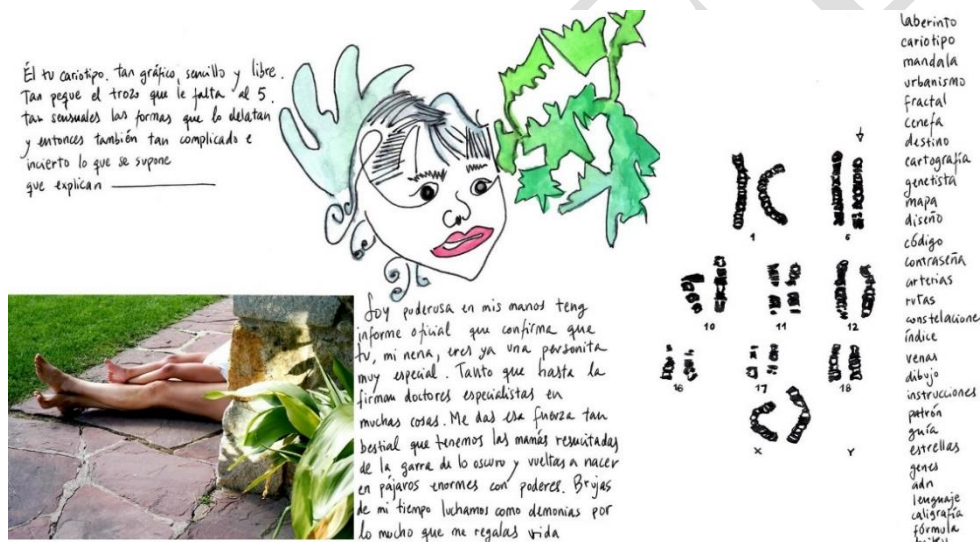 Él tu cariotipo. tan gráfico, sencillo y libre.
Tan peque el trozo que le falta al 5.
tan sensuales las formas que lo delatan
y entonces también tan complicado e
incierto lo que se supone
que explican
Soy puderusa en mis manos teng
informe oficial que confirma que
tv, mi nena, eres ya una personita
muy especial. Tanto que hasta la
firman doctores especialistas en
muchas cosas. Me das esa fuerza tan
bestial que tenemos las mamás resucitadas
de la garra de lo oscuro y vueltas a nacer
en pájaros enormes con poderes. Brujas
de mi tiempo luchamos como demonias por
lo mucho que me regalas vida
1
5
10
11
12
16
17
18
X
Y
laberinto
cariotipo
mandala
urbanismo
fractal
cenefa
destino
cartografía
genetista
mapa
diseño
código
contraseña
arterias
rutas
constelacione
índice
venas
dibujo
instrucciones
patrón
guía
estrellas
genes
adn
lenguaje
caligrafía
fórmula